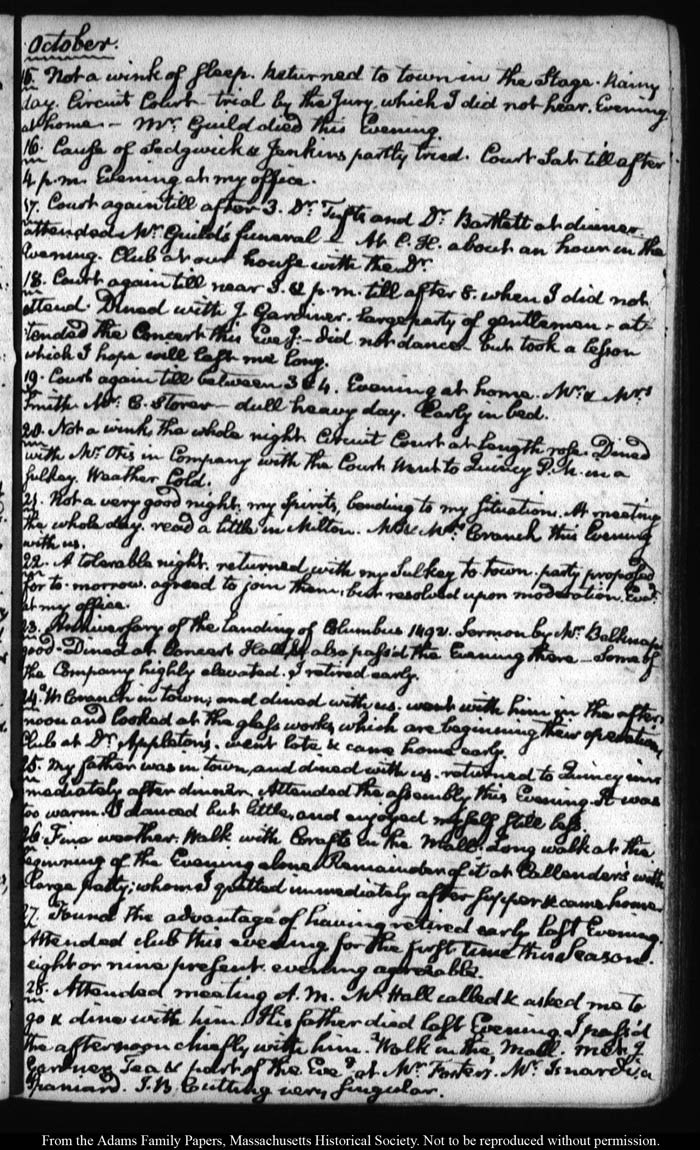 October.
15. Not a wink of sleep. Returned to town in the Stage. Rainy
day. Circuit Court trial by the Jury, which I did not hear. Evening
at home – Mr. Guild died this Evening.
16. Cause of Sedgwick & Jenkins partly tried. Court sat till after
4 p.m. Evening at my office.
17. Court again till after 3. Dr. Tufts and Dr. Bartlett at dinner
attended Mr. Guild's funeral – At C. H. about an hour in the
Evening. Club at our house with the Dr.
18. Court again till near 3. & p.m. till after 8. when I did not
attend. Dined with J. Gardiner. large party of gentlemen – at-
tended the Concert this Eveg. – did not dance – but took a lesson
which I hope will last me long.
19. Court again till between 3 & 4. Evening at home. Mr. & Mrs.
Smith. Mr. C. Storer – dull heavy day. Early in bed.
20. Not a wink the whole night. Circuit Court at length rose. Dined
with Mr. Otis in Company with the Court. Went to Quincy P.M. in a
sulkey. Weather Cold.
21. Not a very good night. my Spirits, bending to my Situation. At meeting
the whole day. read a little in Milton. Mr. & Mrs. Cranch this Evening
with us.
22. A tolerable night. returned with my Sulkey to town. party proposed
for to-morrow. agreed to join them; but resolved upon moderation. Eveg.
at my office.
23. Anniversary of the landing of Columbus 1492. Sermon by Mr. Belknap
good – Dined at Concert Hall, & also pass'd the Evening there – Some of
the Company highly elevated. I retired early.
24. W. Cranch in town; and dined with us. went with him in the after-
noon and looked at the glass works which are beginning their operations
Club at Dr. Appleton's. went late & came home early.
25. My father was in town, and dined with us. returned to Quincy im-
mediately after dinner. Attended the assembly this Evening. It was
too warm. I danced but little, and enjoyed myself still less.
26. Fine weather. Walk with Crafts in the Mall. Long walk at the
beginning of the Evening alone. Remainder of it at Callender's with
large party; whom I quitted immediately after supper & came home.
27. Found the advantage of having retired early last Evening.
Attended club this evening for the first time this Season.
eight or nine present. evening agreeable.
28. Attended meeting A.M. Mr. Hall called & asked me to
go & dine with him. His father died last Evening. I pass'd
the afternoon chiefly with him. Walk in the Mall. met J.
Gardner. Tea & part of the Eveg. at Mr. Foster's. Mr. Isnardi, a
Spaniard. J. B. Cutting very singular.
From the Adams Family Papers, Massachusetts Historical Society. Not to be reproduced without permission.